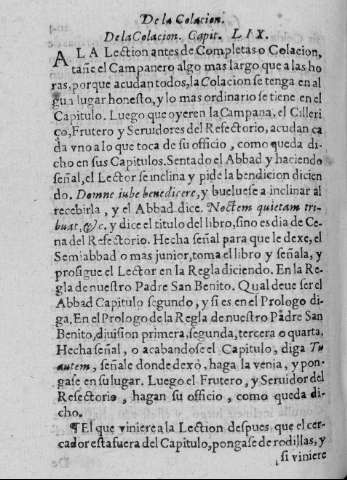 De la Colacion.
De la Colacion. Capit. LIX.
A LA Lection antes de Completas o Colacion,
tañe el Campanero algo mas largo que a las ho
ras, porque acudan todos, la Colacion se tenga en al
gun lugar honesto, y lo mas ordinario se tiene en el
Capitulo. Luego que oyeren la Campana, el Cilleri
ço, Frutero y Seruidores del Refectorio, acudan ca
da vno a lo que toca de su officio, como queda di
cho en sus Capitulos. Sentado el Abbad y haciendo
señal, el Lector se inclina y pide la bendicion dicien
do. Domne iube benedicere, y bueluese a inclinar al
recebirla, y el Abbad dice. Noctem quietam tri
buat, &c. y dice el titulo del libro, sino es dia de Ce
na del Refectorio. Hecha señal para que le dexe, el
Semiabbad o mas junior, toma el libro y señala, y
prosigue el Lector en la Regla diciendo. En la Re
gla de nuestro Padre San Benito. Qual deue ser el
Abbad Capitulo segundo, y si es en el Prologo di
ga. En el Prologo de la Regla de nuestro Padre San
Benito, diuision primera, segunda, tercera o quarta.
Hecha señal, o acabandose el Capitulo, diga Tu
autem, señale donde dexò, haga la venia, y pon
gase en su lugar. Luego el Frutero, y Seruidor del
Refectorio, hagan su officio, como queda di
cho.
¶ El que viniere a la Lection despues que el cer-
cador esta fuera del Capitulo, pongase de rodillas, y
si viniere